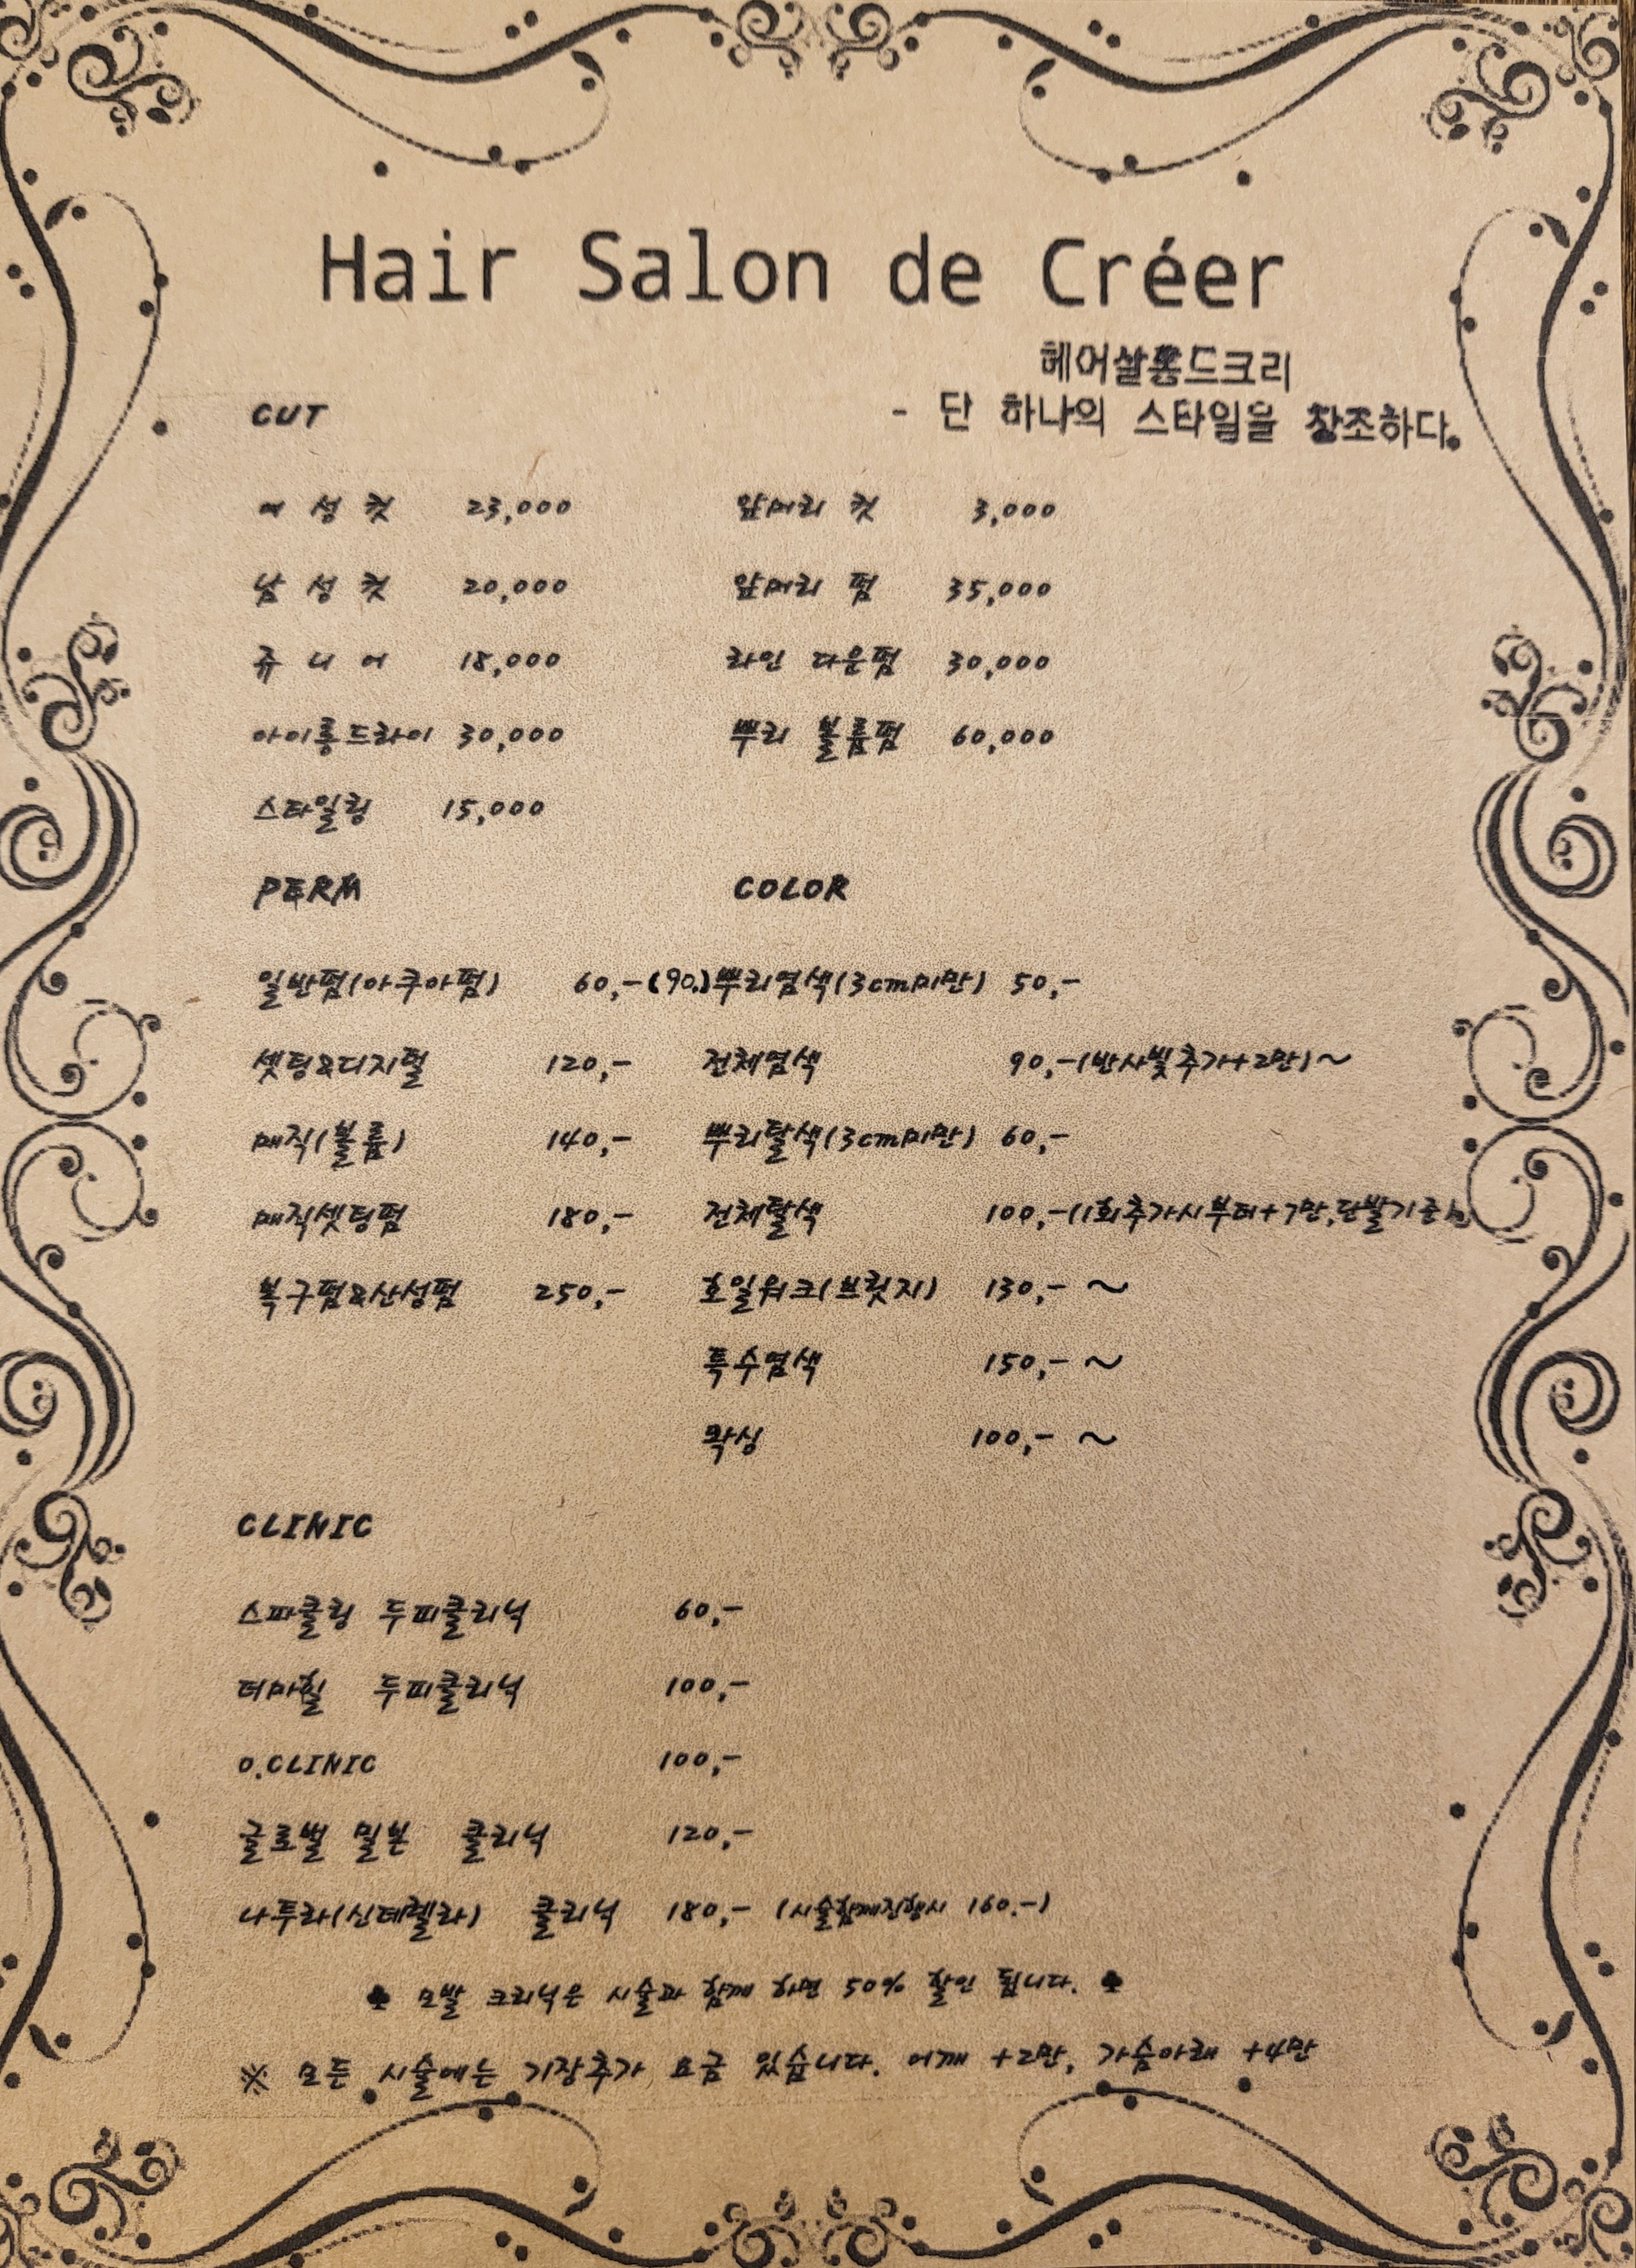 Hair Salon de Créer
헤어살롱드크리
- 단 하나의 스타일을 창조하다.
CUT
여 성 컷 23,000 앞머리 컷 3,000
남 성 컷 20,000 앞머리 펌 35,000
쥬 니 어 18,000 라인 다운펌 30,000
아이롱드라이 30,000 뿌리 볼륨펌 60,000
스타일링 15,000
PERM COLOR
일반펌(아쿠아펌) 60,-(90,) 뿌리염색(3cm미만) 50,-
셋팅&디지털 120,- 전체염색 90,-(반사빛추가+2만)~
매직(볼륨) 140,- 뿌리탈색(3cm미만) 60,-
매직셋팅펌 180,- 전체탈색 100,-(1회추가시부터+7만,단발기준)
복구펌&산성펌 250,- 호일워크(브릿지) 130,- ~
특수염색 150,- ~
왁싱 100,- ~
CLINIC
스파클링 두피클리닉 60,-
더마힐 두피클리닉 100,-
O.CLINIC 100,-
글로벌 밀본 클리닉 120,-
나투라(신데렐라) 클리닉 180,- (시술함께진행시 160.-)
♣ 모발 크리닉은 시술과 함께 하면 50% 할인 됩니다. ♣
※ 모든 시술에는 기장추가 요금 있습니다. 어깨 +2만, 가슴아래 +4만